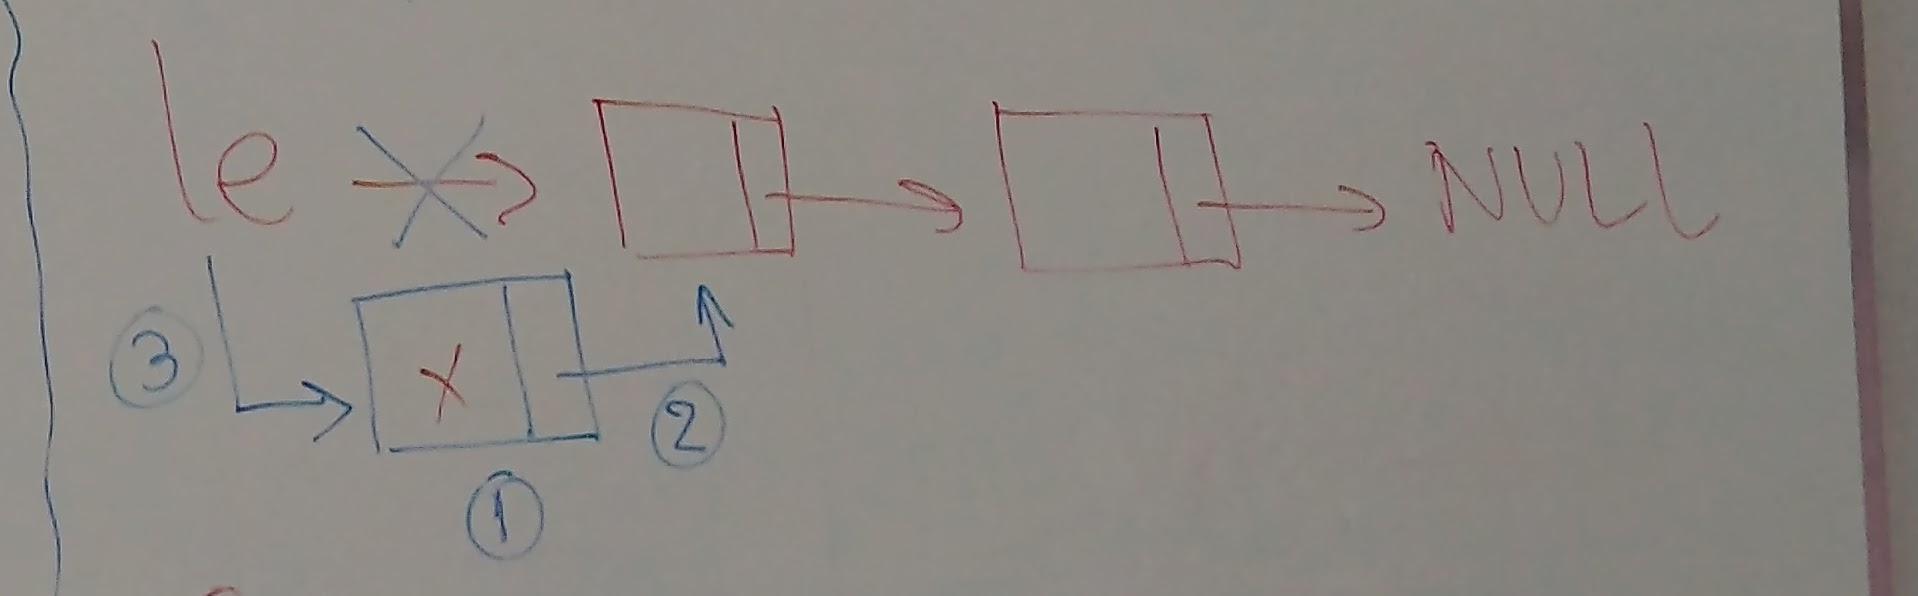 le NULL
3 x 2
1